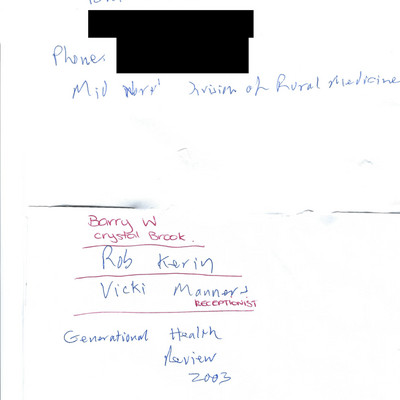 Phone:
Mid North Division of Rural Medicine
Barry W
Crystal Brook.
Rob Kerin
Vicki Manners
RECEPTIONIST
Generational Health
Review
2003